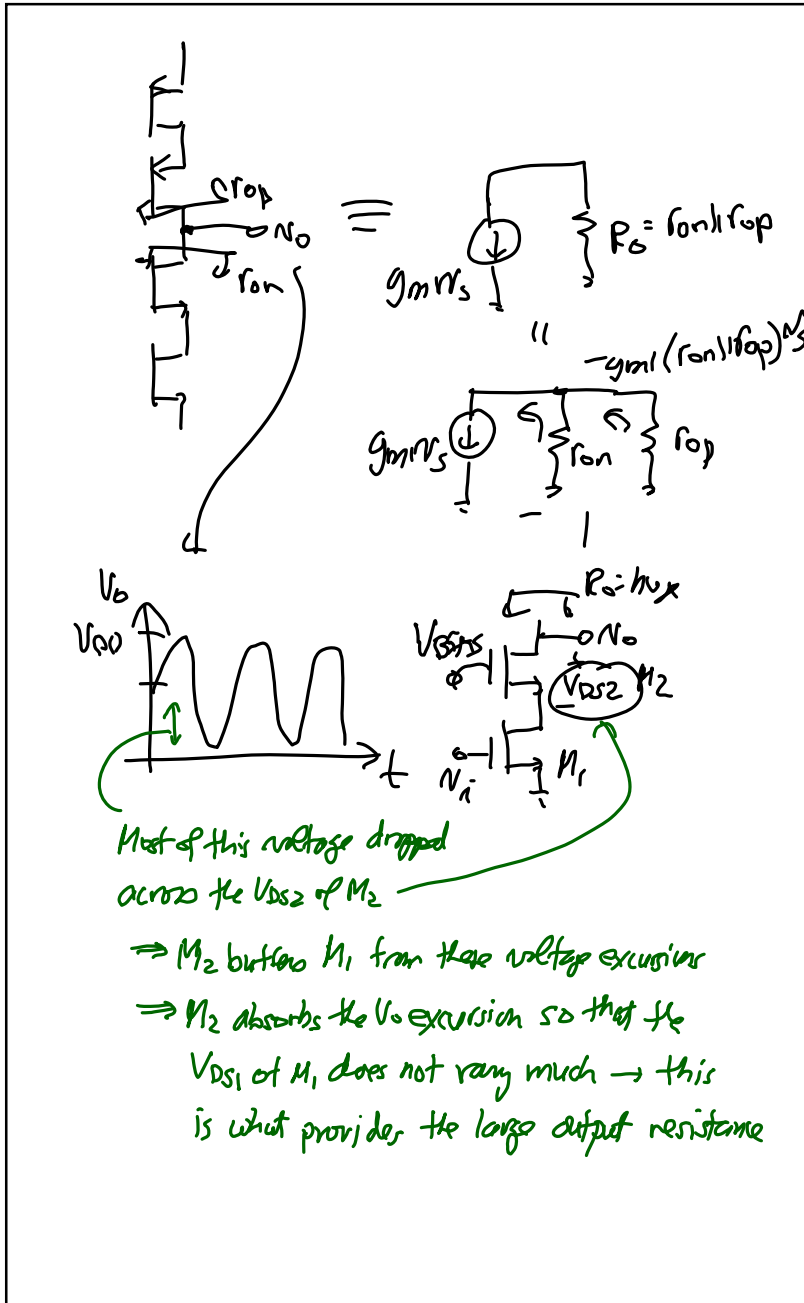 rop
vo
ron
gm1vs
Ro = ron||rop
"
-gm1(ron||rop)vs
gm1vs
ron
rop
Vo
VDD
t
Ro = huge
VBIAS
vo
+
VDS2
-
M2
vi
M1
Most of this voltage dropped
across the VDS2 of M2
⇒ M2 buffers M1 from these voltage excursions
⇒ M2 absorbs the Vo excursion so that the
VDS1 of M1 does not vary much → this
is what provides the large output resistance